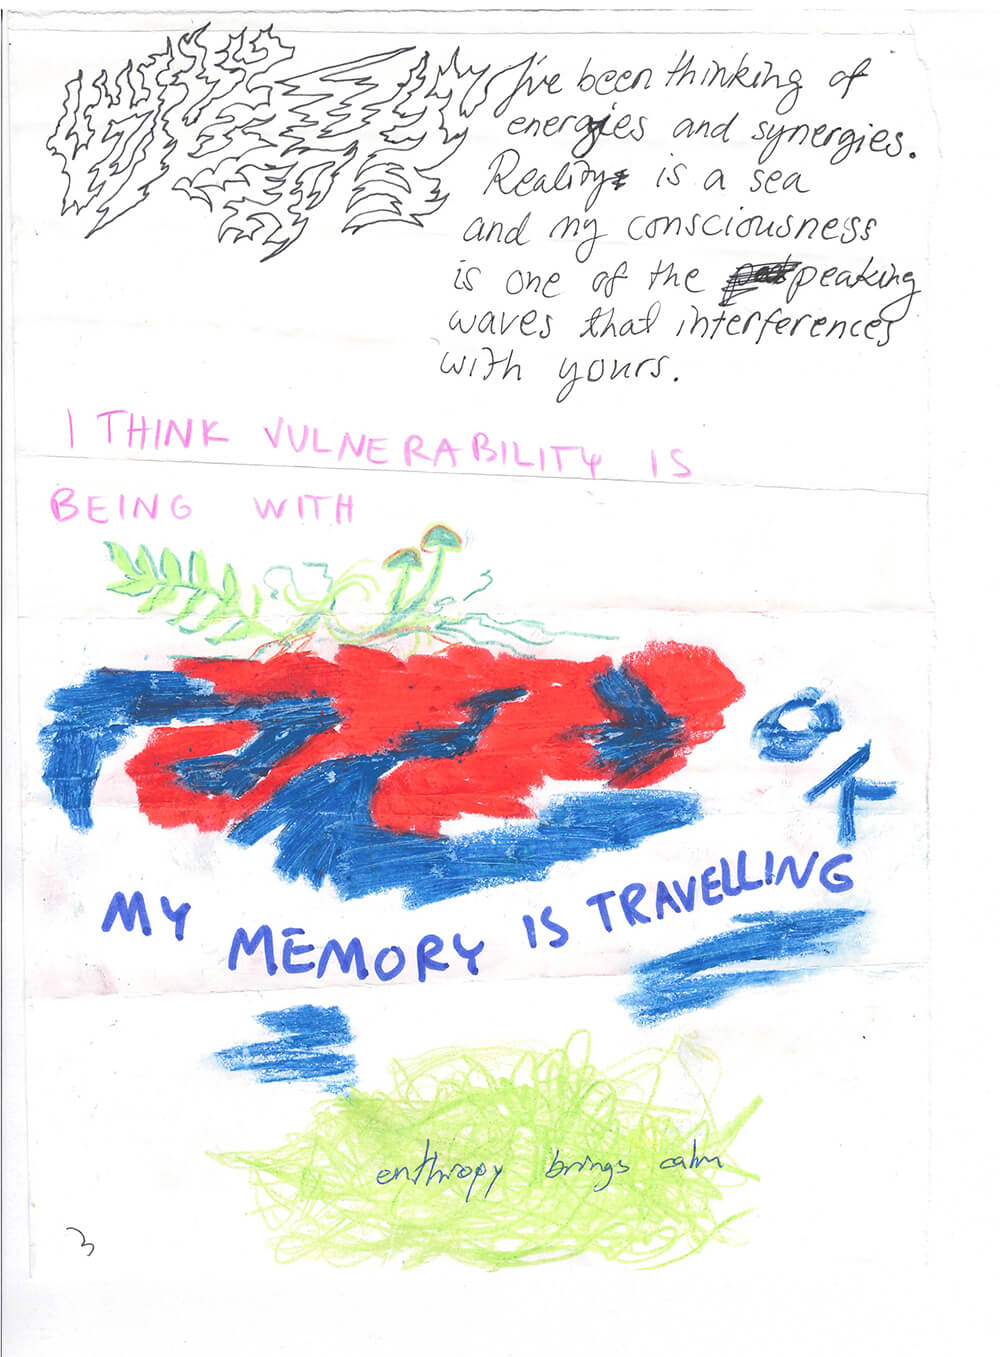 I've been thinking of
energies and synergies.
Reality is a sea
and my consciousness
is one of the peaking
waves that interferences
with yours.
I THINK VULNERABILITY IS
BEING WITH
OK
MY MEMORY IS TRAVELLING
enthropy brings calm
3